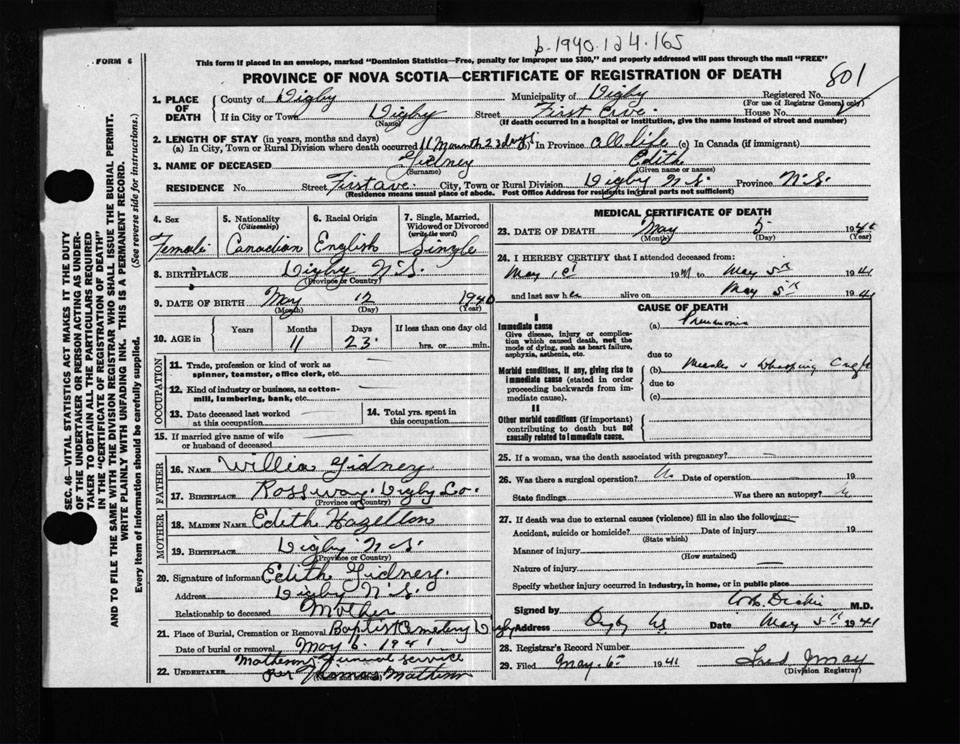 b.1940.124.165
FORM 6
This form if placed in an envelope, marked "Dominion Statistics—Free, penalty for improper use $300," and properly addressed will pass through the mail "FREE"
PROVINCE OF NOVA SCOTIA—CERTIFICATE OF REGISTRATION OF DEATH
801
1. PLACE OF DEATH
County of Digby Municipality of Digby Registered No.
(For use of Registrar General only)
If in City or Town Digby Street First Ave House No.
(Name) (If death occurred in a hospital or institution, give the name instead of street and number)
2. LENGTH OF STAY (in years, months and days)
(a) In City, Town or Rural Division where death occurred 11 Month 23 days (b) In Province All life (c) In Canada (if immigrant)
3. NAME OF DECEASED Gidney Edith
(Surname) (Given name or names)
RESIDENCE No. Street First Ave. City, Town or Rural Division Digby N.S. Province N.S.
(Residence means usual place of abode. Post Office Address for residents in rural parts not sufficient)
4. Sex
Female
5. Nationality
(Citizenship)
Canadian
6. Racial Origin
English
7. Single, Married, Widowed or Divorced
(write the word)
Single
8. BIRTHPLACE Digby N.S.
(Province or Country)
9. DATE OF BIRTH May 12 1940
(Month) (Day) (Year)
10. AGE in
Years Months Days If less than one day old
11 23 hrs. or min.
OCCUPATION
11. Trade, profession or kind of work as
spinner, teamster, office clerk, etc.
12. Kind of industry or business, as cotton-
mill, lumbering, bank, etc.
13. Date deceased last worked
at this occupation
14. Total yrs. spent in
this occupation
15. If married give name of wife
or husband of deceased
FATHER
16. NAME Gidney
17. BIRTHPLACE Rossway Digby Co.
(Province or Country)
MOTHER
18. MAIDEN NAME Edith Hazelton
19. BIRTHPLACE Digby N.S.
(Province or Country)
20. Signature of informant Edith Gidney.
Address Digby N.S.
Relationship to deceased Mother
21. Place of Burial, Cremation or Removal Baptist Cemetery Digby
Date of burial or removal May 6 1941
22. UNDERTAKER Funeral Service
per Thomas
MEDICAL CERTIFICATE OF DEATH
23. DATE OF DEATH May 5 19
(Month) (Day) (Year)
24. I HEREBY CERTIFY that I attended deceased from:
May 1st 1941 to May 5th 1941
and last saw her alive on May 5th 1941
CAUSE OF DEATH
I
Immediate cause
Give disease, injury or complica-
tion which caused death, not the
mode of dying, such as heart failure,
asphyxia, asthenia, etc.
(a) Pneumonia
due to
Morbid conditions, if any, giving rise to
immediate cause (stated in order
proceeding backwards from im-
mediate cause).
(b) Measles & Whooping Cough
due to
(c)
II
Other morbid conditions (if important)
contributing to death but not
causally related to immediate cause.
25. If a woman, was the death associated with pregnancy?
26. Was there a surgical operation? Date of operation 19
State findings Was there an autopsy?
27. If death was due to external causes (violence) fill in also the following:
Accident, suicide or homicide? Date of injury 19
(State which)
Manner of injury
(How sustained)
Nature of injury
Specify whether injury occurred in industry, in home, or in public place
Signed by M.D.
Address Digby NS Date May 5th 1941
28. Registrar's Record Number
29. Filed May. 6th 1941
(Division Registrar)
SEC. 46—VITAL STATISTICS ACT MAKES IT THE DUTY
OF THE UNDERTAKER OR PERSON ACTING AS UNDER-
TAKER TO OBTAIN ALL THE PARTICULARS REQUIRED
IN THE "CERTIFICATE OF REGISTRATION OF DEATH"
AND TO FILE THE SAME WITH THE DIVISION REGISTRAR WHO SHALL ISSUE THE BURIAL PERMIT.
WRITE PLAINLY WITH UNFADING INK. THIS IS A PERMANENT RECORD.
Every item of information should be carefully supplied. (See reverse side for instructions.)